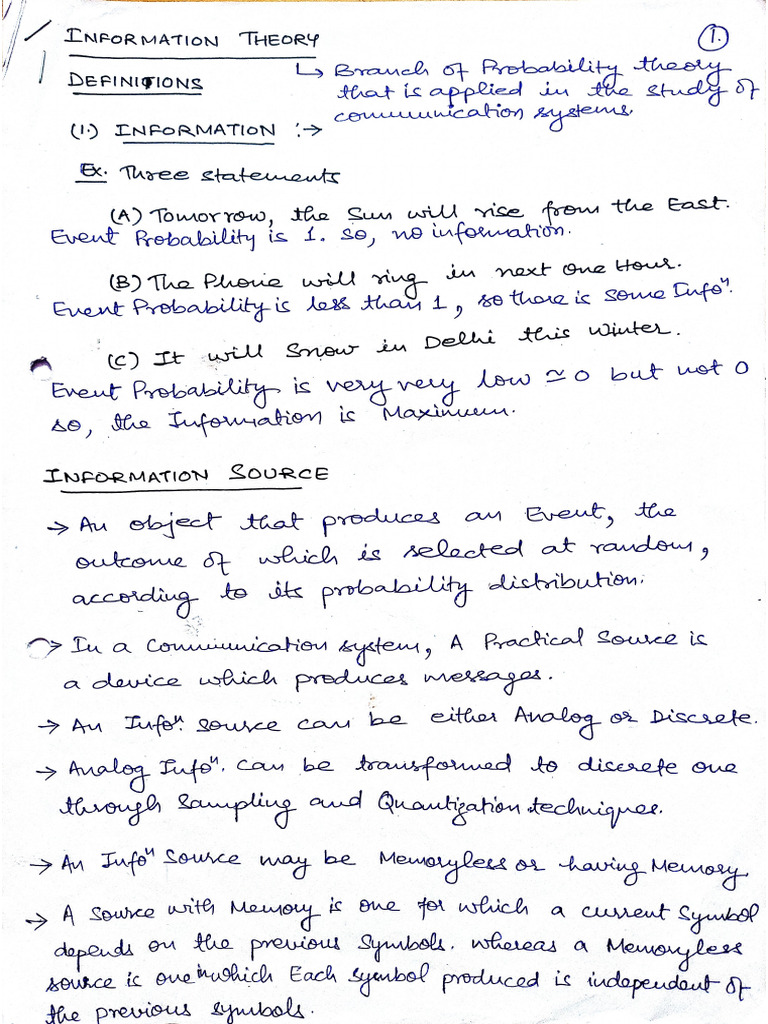 INFORMATION THEORY
1.
↳ Branch of Probability theory
that is applied in the study of
communication systems.
DEFINITIONS
(1.) INFORMATION :→
Ex. Three statements
(A) Tomorrow, the Sun will rise from the East.
Event Probability is 1. so, no information.
(B) The Phone will ring in next one Hour.
Event Probability is less than 1, so there is some Infoⁿ.
(C) It will Snow in Delhi this Winter.
Event Probability is very very low ≃ 0 but not 0
so, the Information is Maximum.
INFORMATION SOURCE
→ An object that produces an Event, the
outcome of which is selected at random,
according to its probability distribution.
→ In a Communication system, A Practical Source is
a device which produces messages.
→ An Infoⁿ. source can be either Analog or Discrete.
→ Analog Infoⁿ. can be transformed to discrete one
through Sampling and Quantization techniques.
→ An Infoⁿ Source may be Memoryless or having Memory
→ A source with Memory is one for which a current Symbol
depends on the previous Symbols. whereas a Memoryless
source is one in which Each symbol produced is independent of
the previous symbols.